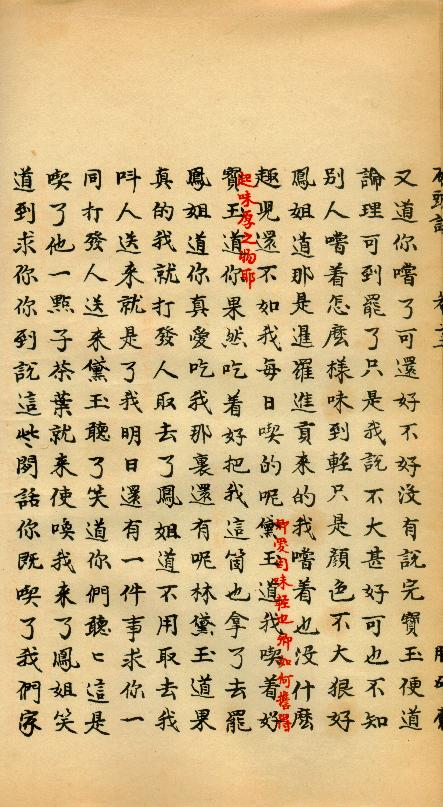 又道你嚐了可還好不好沒有說完寶玉便道
論理可到罷了只是我說不大甚好可也不知
別人嚐着怎麼樣味到輕只是顏色不大狠好
鳳姐道那是暹羅進貢來的我嚐着也沒什麼
趣兒還不如我每日喫的呢黛玉道我喫着好
卿愛因味輕也卿如何擔得
起味厚之物耶
寶玉道你果然吃着好把我這箇也拿了去罷
鳳姐道你真愛吃我那裏還有呢林黛玉道果
真的我就打發人取去了鳳姐道不用取去我
呌人送來就是了我明日還有一件事求你一
同打發人送來黛玉聽了笑道你們聽〻這是
喫了他一點子茶葉就来使喚我来了鳳姐笑
道到求你你到說這些閑話你既喫了我們家